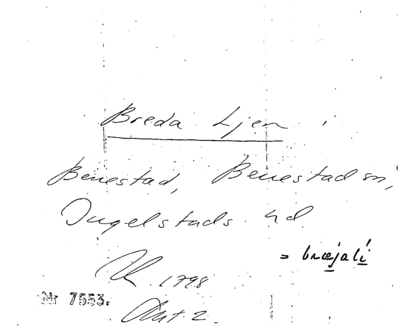 Breda Ljen
Benestad, Benestad sn,
Ingelstads hd.
= bræjalí
1798
Nr 7553.
Akt 2.